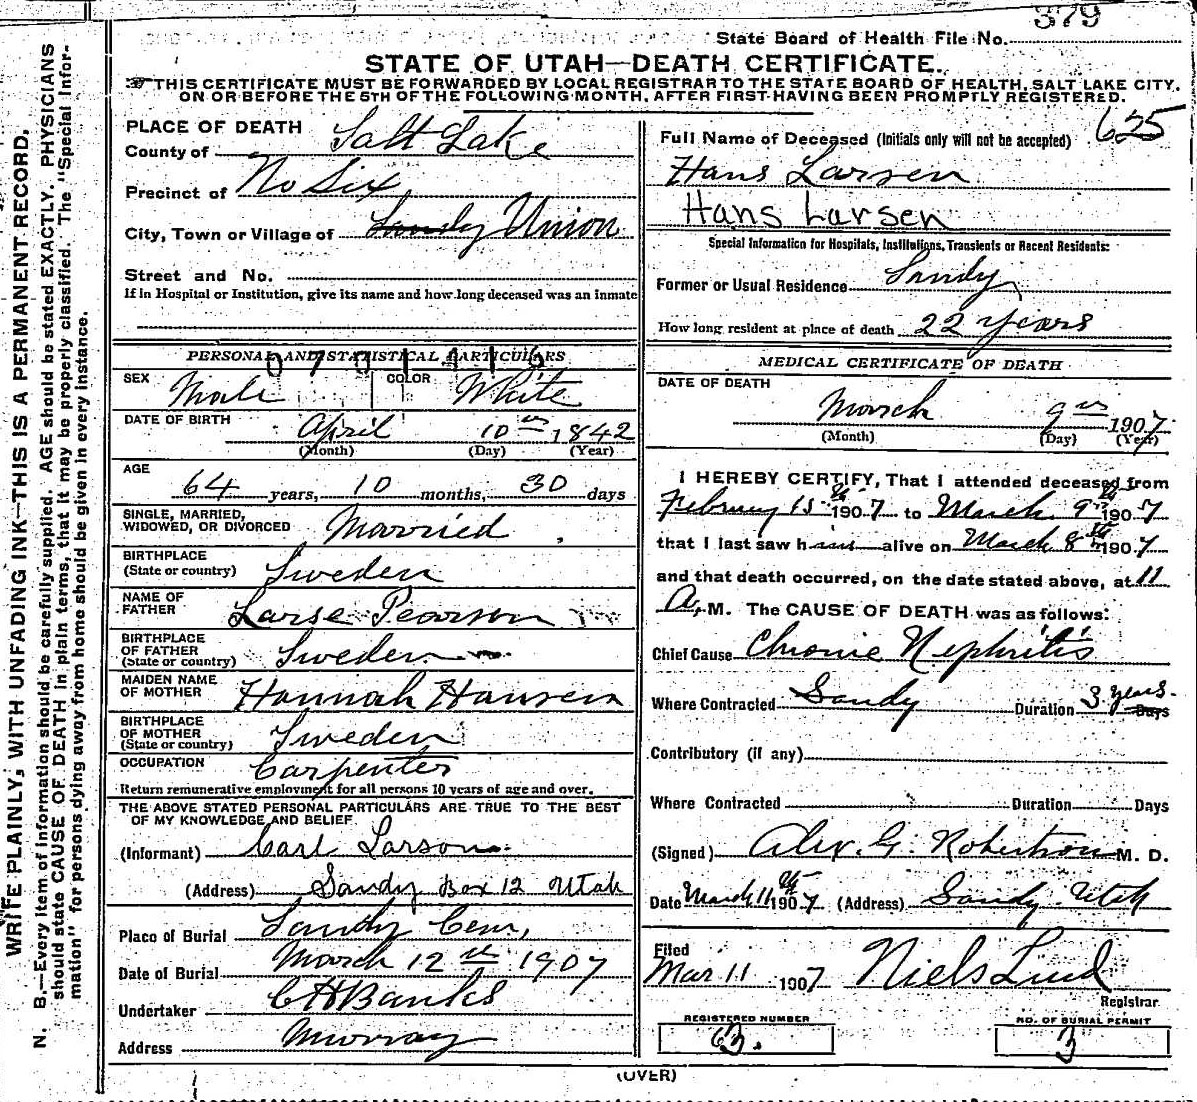 379
State Board of Health File No.
STATE OF UTAH—DEATH CERTIFICATE.
THIS CERTIFICATE MUST BE FORWARDED BY LOCAL REGISTRAR TO THE STATE BOARD OF HEALTH, SALT LAKE CITY,
ON OR BEFORE THE 5TH OF THE FOLLOWING MONTH, AFTER FIRST HAVING BEEN PROMPTLY REGISTERED.
WRITE PLAINLY, WITH UNFADING INK—THIS IS A PERMANENT RECORD.
N. B.—Every item of information should be carefully supplied. AGE should be stated EXACTLY. PHYSICIANS
should state CAUSE OF DEATH in plain terms, that it may be properly classified. The "Special Infor-
mation" for persons dying away from home should be given in every instance.
PLACE OF DEATH
County of Salt Lake
Precinct of No Six
City, Town or Village of Sandy Union
Street and No.
If in Hospital or Institution, give its name and how long deceased was an inmate
PERSONAL AND STATISTICAL PARTICULARS
SEX Male COLOR White
DATE OF BIRTH April 10 1842
(Month) (Day) (Year)
AGE 64 years, 10 months, 30 days
SINGLE, MARRIED,
WIDOWED, OR DIVORCED Married
BIRTHPLACE
(State or country) Sweden
NAME OF
FATHER Larse Pearson
BIRTHPLACE
OF FATHER
(State or country) Sweden
MAIDEN NAME
OF MOTHER Hannah Hansen
BIRTHPLACE
OF MOTHER
(State or country) Sweden
OCCUPATION Carpenter
Return remunerative employment for all persons 10 years of age and over.
THE ABOVE STATED PERSONAL PARTICULARS ARE TRUE TO THE BEST
OF MY KNOWLEDGE AND BELIEF
(Informant) Carl Larson
(Address) Sandy Box 12 Utah
Place of Burial Sandy Cem,
Date of Burial March 12 1907
Undertaker C H Banks
Address Murray
625
Full Name of Deceased (Initials only will not be accepted)
Hans Larsen
Hans Larsen
Special Information for Hospitals, Institutions, Transients or Recent Residents:
Former or Usual Residence Sandy
How long resident at place of death 22 years
MEDICAL CERTIFICATE OF DEATH
DATE OF DEATH
March 9 1907
(Month) (Day) (Year)
I HEREBY CERTIFY, That I attended deceased from
February 15th 1907 to March 9th 1907
that I last saw him alive on March 8th 1907
and that death occurred, on the date stated above, at 11
A. M. The CAUSE OF DEATH was as follows:
Chief Cause Chronic Nephritis
Where Contracted Sandy Duration 3 years. Days
Contributory (if any)
Where Contracted Duration Days
(Signed) Alex. G. Robertson M. D.
Date March 11th 1907 (Address) Sandy Utah
Filed
Mar 11 1907 Niels Lind
Registrar
REGISTERED NUMBER NO. OF BURIAL PERMIT
63. 3
(OVER)